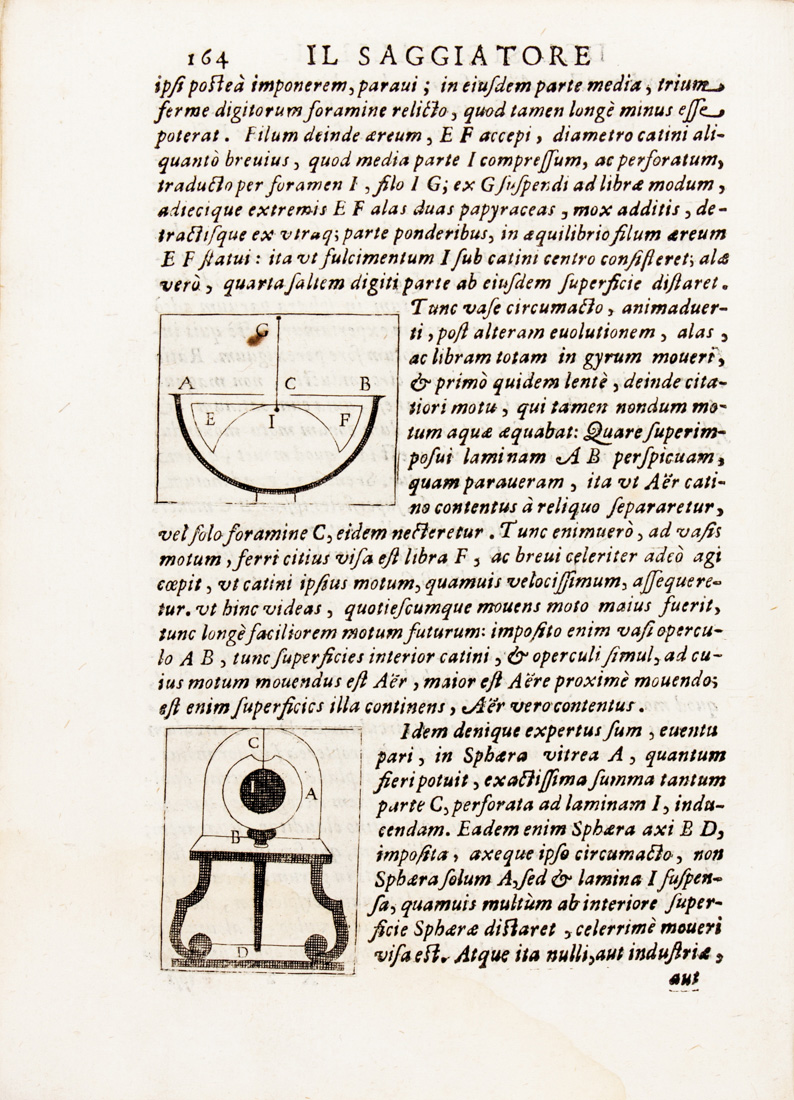 164 IL SAGGIATORE
ipſi poſteà imponerem, paraui ; in eiuſdem parte media, trium
ferme digitorum foramine relicto, quod tamen longè minus eſſe
poterat. Filum deinde æreum, E F accepi, diametro catini ali-
quantò breuius, quod media parte I compreſſum, ac perforatum,
traducto per foramen I, filo I G; ex G ſuſpendi ad libræ modum,
adiecique extremis E F alas duas papyraceas, mox additis, de-
tractiſque ex vtraq; parte ponderibus, in æquilibrio filum æreum
E F ſtatui : ita vt fulcimentum I ſub catini centro conſiſteret; alæ
verò, quarta ſaltem digiti parte ab eiuſdem ſuperficie diſtaret.
Tunc vaſe circumacto, animaduer-
ti, poſt alteram euolutionem, alas,
ac libram totam in gyrum moueri,
& primò quidem lentè, deinde cita-
tiori motu, qui tamen nondum mo-
tum aquæ æquabat: Quare ſuperim-
poſui laminam A B perſpicuam,
quam paraueram, ita vt Aër cati-
no contentus à reliquo ſepararetur,
G
A C B
E I F
vel ſolo foramine C, eidem necteretur. Tunc enimuerò, ad vaſis
motum, ferri citius viſa eſt libra F, ac breui celeriter adeò agi
cœpit, vt catini ipſius motum, quamuis velociſſimum, aſſequere-
tur. vt hinc videas, quotieſcumque mouens moto maius fuerit,
tunc longè faciliorem motum futurum: impoſito enim vaſi opercu-
lo A B, tunc ſuperficies interior catini, & operculi ſimul, ad cu-
ius motum mouendus eſt Aër, maior eſt Aëre proximè mouendo;
eſt enim ſuperficies illa continens, Aër vero contentus.
Idem denique expertus ſum, euentu
pari, in Sphæra vitrea A, quantum
fieri potuit, exactiſſima ſumma tantum
parte C, perforata ad laminam I, indu-
cendam. Eadem enim Sphæra axi B D,
impoſita, axeque ipſo circumacto, non
Sphæra ſolum A, ſed & lamina I ſuſpen-
ſa, quamuis multùm ab interiore ſuper-
ficie Sphæræ diſtaret, celerrimè moueri
viſa eſt. Atque ita nulli, aut induſtriæ,
C
I A
B
D
aut